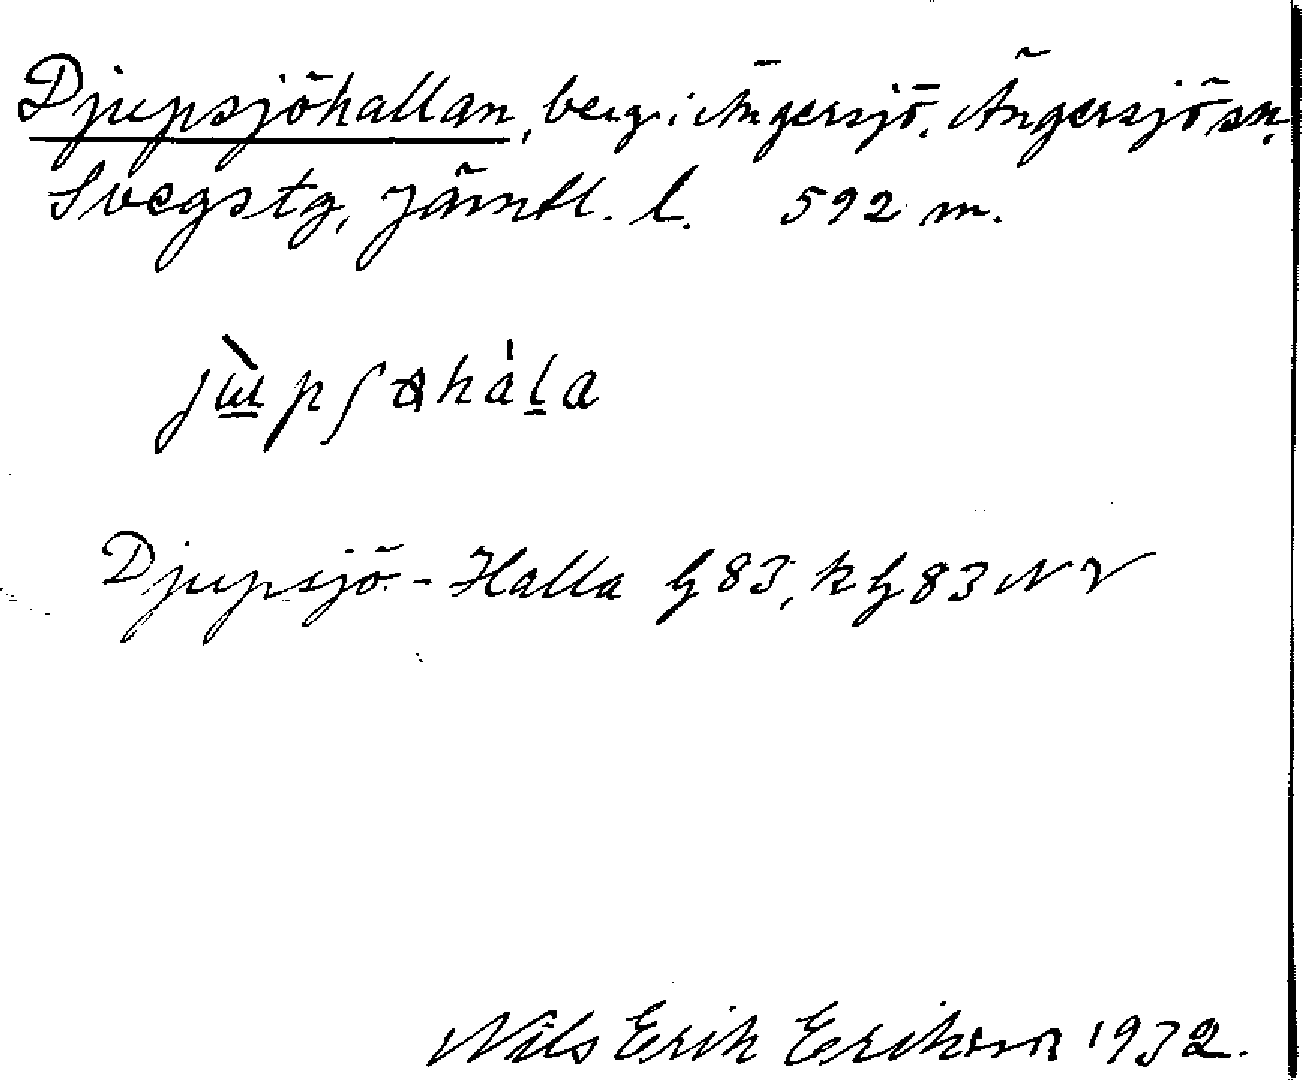 Djupsjöhallan, berg i Ängersjö, Ängersjö sn,
Svegs tg, Jämtl. l. 592 m.
Djupsjö-Halla h 83, k h 83 NV
Nils Erik Erikson 1932.